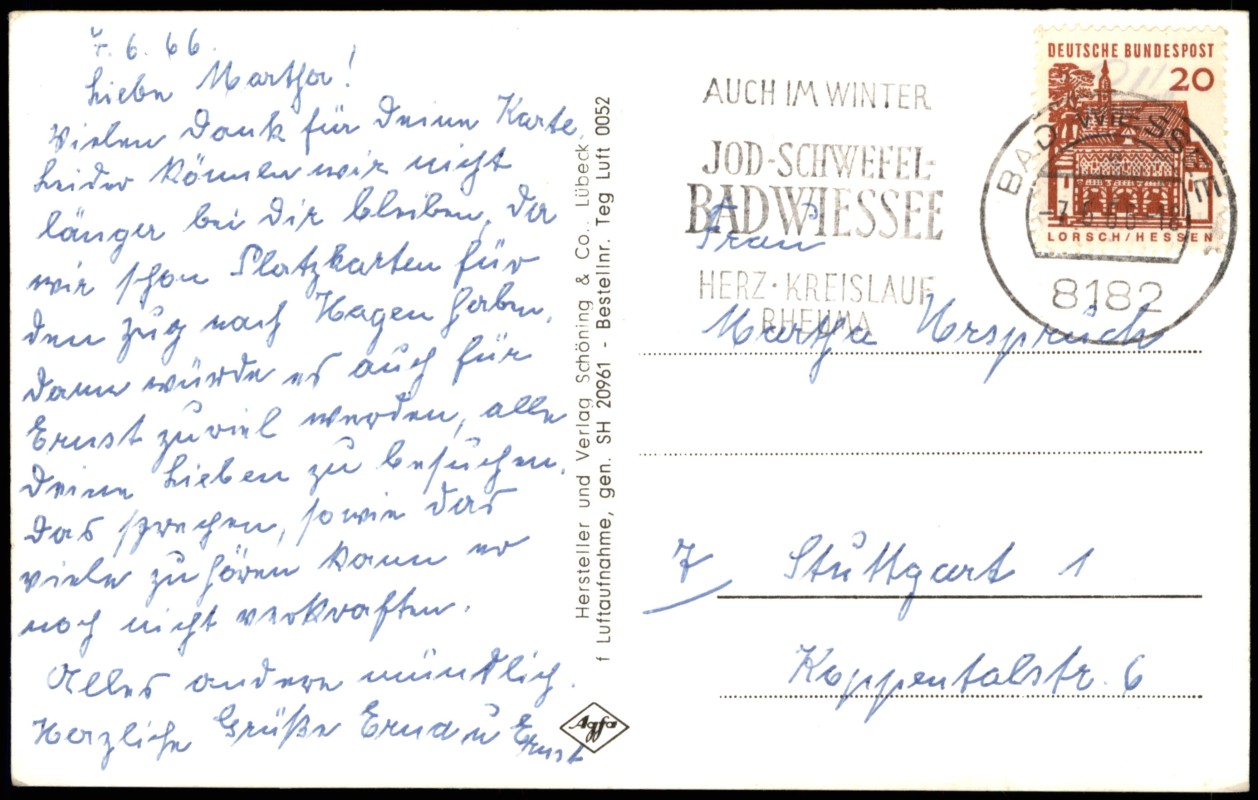 7.6.66.
Liebe Martha!
Vielen Dank für Deine Karte.
Leider können wir nicht
länger bei Dir bleiben, da
wir schon Platzkarten für
den Zug nach Hagen haben.
Dann würde es auch für
Ernst zuviel werden, alle
Deine Lieben zu besuchen.
Das sprechen, sowie das
viele zuhören kann er
noch nicht verkraften.
Alles andere mündlich.
Herzliche Grüße u Ernst
Hersteller und Verlag Schöning & Co., Lübeck
f Luftaufnahme, gen. SH 20961 - Bestellnr. Teg Luft 0052
Agfa
AUCH IM WINTER
JOD-SCHWEFEL-
BAD WIESSEE
HERZ·KREISLAUF
RHEUMA
DEUTSCHE BUNDESPOST
20
LORSCH/HESSEN
BAD WIESSEE
8182
Frau
Martha Ursprüch
7 Stuttgart 1
Koppentalstr. 6